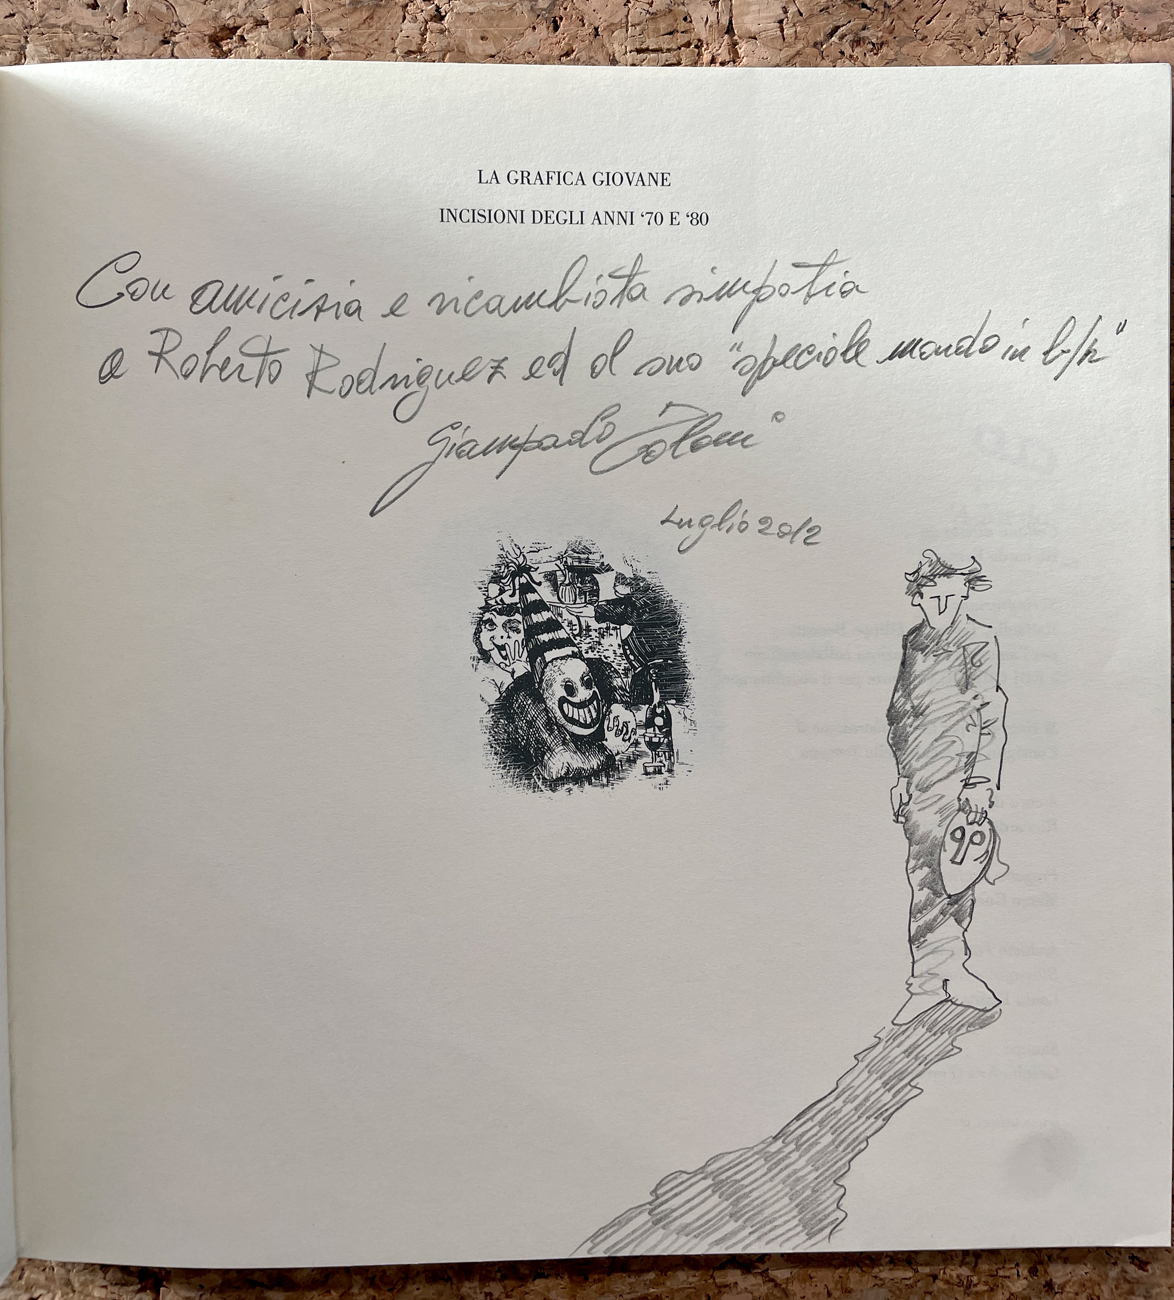 LA GRAFICA GIOVANE
INCISIONI DEGLI ANNI ‘70 E ‘80
Con amicizia e ricambiata simpatia
a Roberto Rodriguez ed al suo "speciale mondo in b/n"
Giampaolo
Luglio 2012